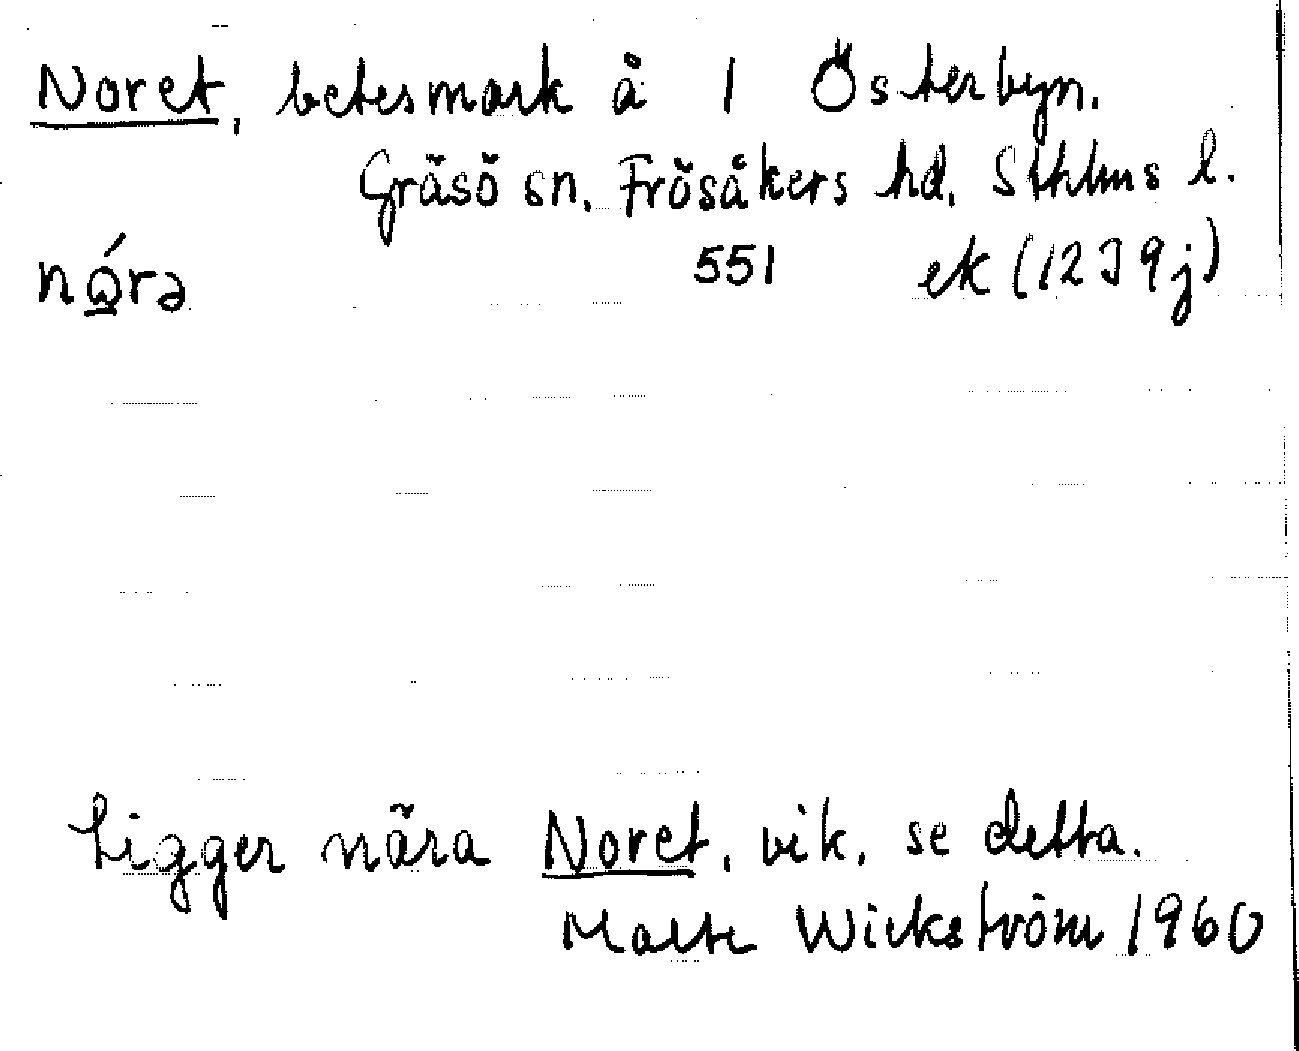 Noret, betesmark å 1 Österbyn.
Gräsö sn. Frösåkers hd. Sthlms l.
nώrə 551 ek (12 J 9 j)
Ligger nära Noret, vik, se detta.
Malte Wickström 1960